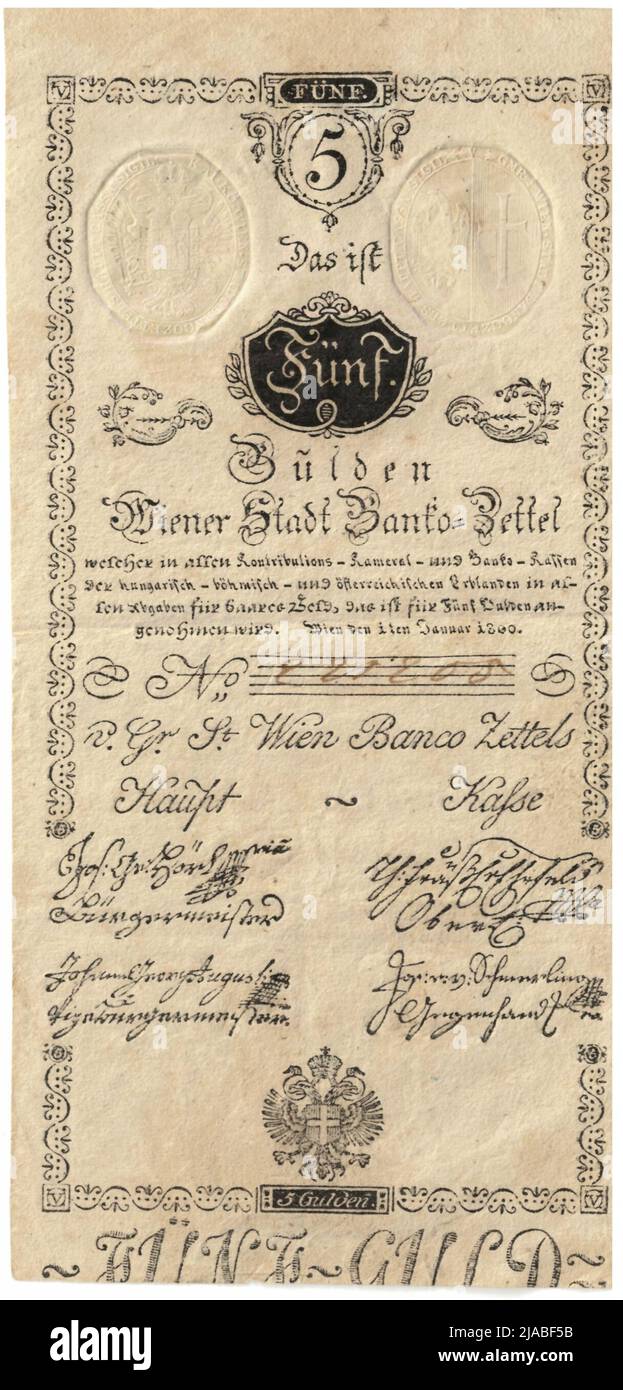 V FÜNF. V
5
Das iſt
Fünf.
Gulden
Wiener Stadt Banko-Zettel
welcher in allen Kontributions - Kameral - und Banko - Kassen
der hungarisch - böhmisch - und österreichischen Erblanden in al-
len Abgaben für baares Geld, das ist für Fünf Gulden an-
genohmen wird. Wien den 1ten Januar 1800.
No
v. Gr. St. Wien Banco Zettels
Haupt ~ Kasse
Bürgermeister
Johann Georg Augusti Jos: v: v: Schmerling
Vizebürgermeister. Gegenhand
V 5 Gulden. V
~ FÜNF ~ GULD ~
alamy
Image ID: 2JABF5B
www.alamy.com